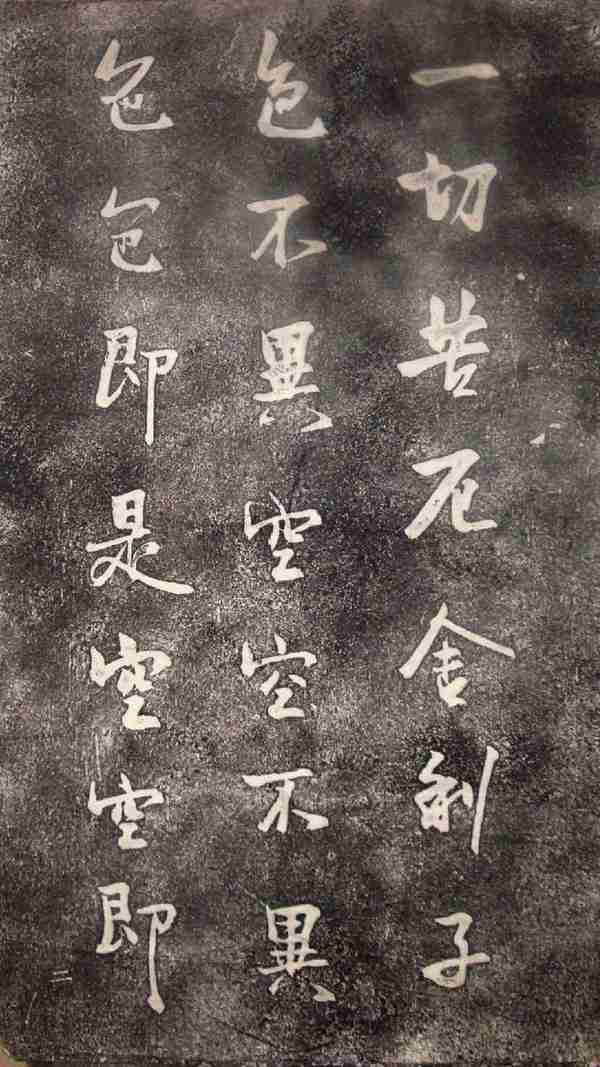 一切苦厄舍利子
色不異空空不異
色色即是空空即
二